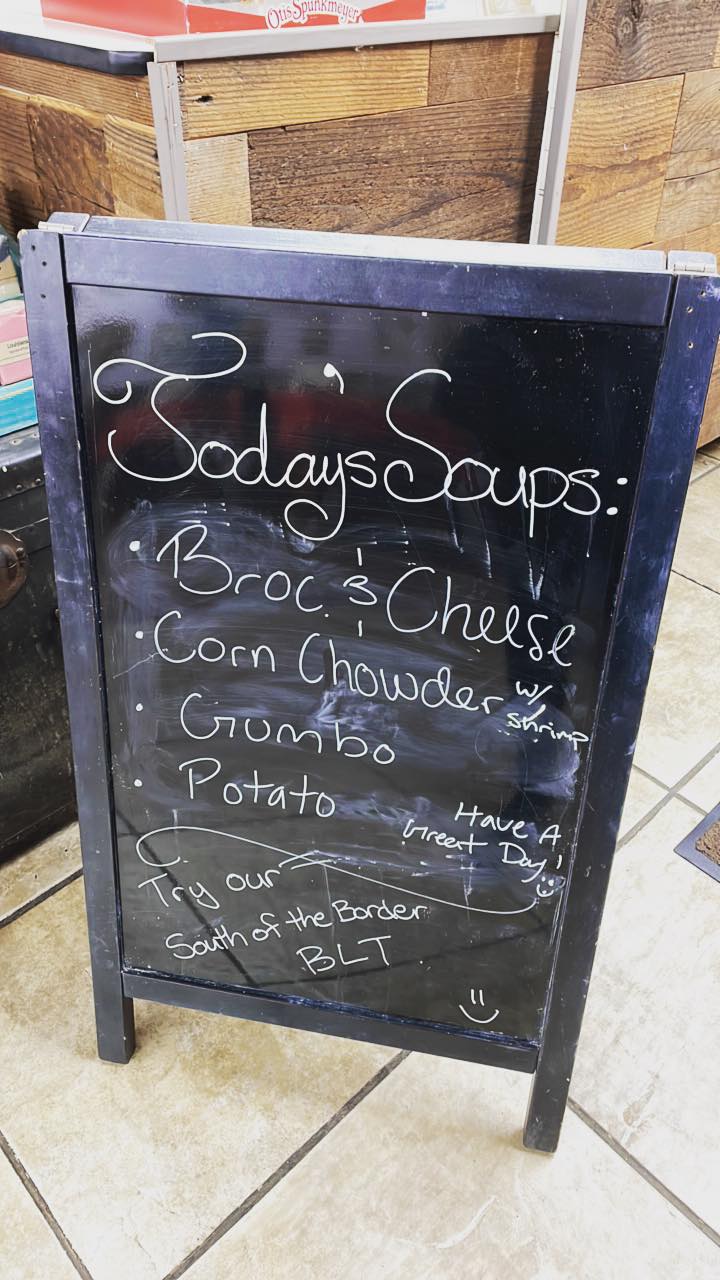 Otis Spunkmeyer
Today's Soups:
• Broc & Cheese
• Corn Chowder w/ shrimp
• Gumbo
• Potato
Have A
Great Day!
Try our
South of the Border
BLT